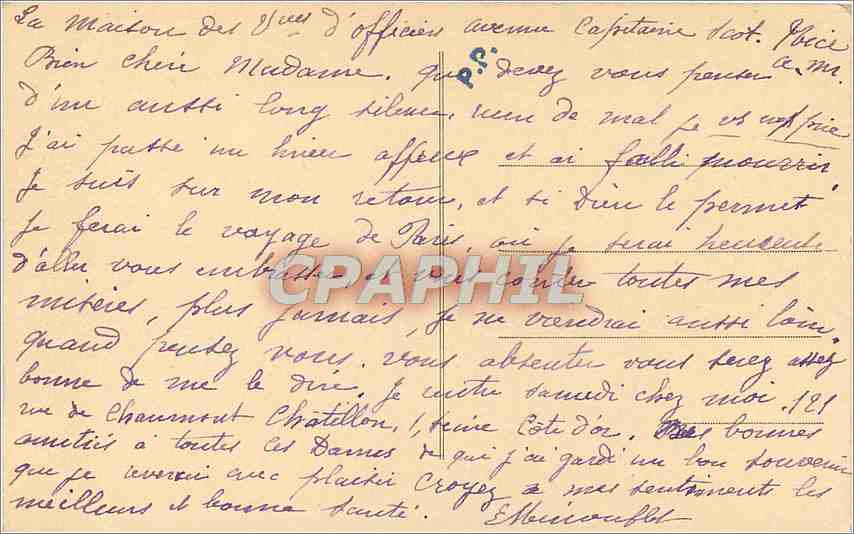 La Maison des Vves d'officiers avenue Capitaine Scot. Nice
a. m.
P.P.
Bien chère Madame. Que devez vous penser
d'un aussi long silence, rien de mal je vs en prie
J'ai passé un hiver affreux et ai failli mourir,
Je suis sur mon retour, et si Dieu le permet
je ferai le voyage de Paris, où je serai heureuse
d'aller vous embrasser, et vous conter toutes mes
CPAPHIL
misères, plus jamais, je ne viendrai aussi loin.
quand pensez vous. vous absenter vous serez assez
bonne de me le dire. Je rentre samedi chez moi. 121
rue de Chaumont Châtillon, s, Seine Côte d'or. Mes bonnes
amitiés à toutes ces Dames de qui j'ai gardé un bon souvenir
que je reverrai avec plaisir Croyez à mes sentiments les
meilleurs et bonne santé.